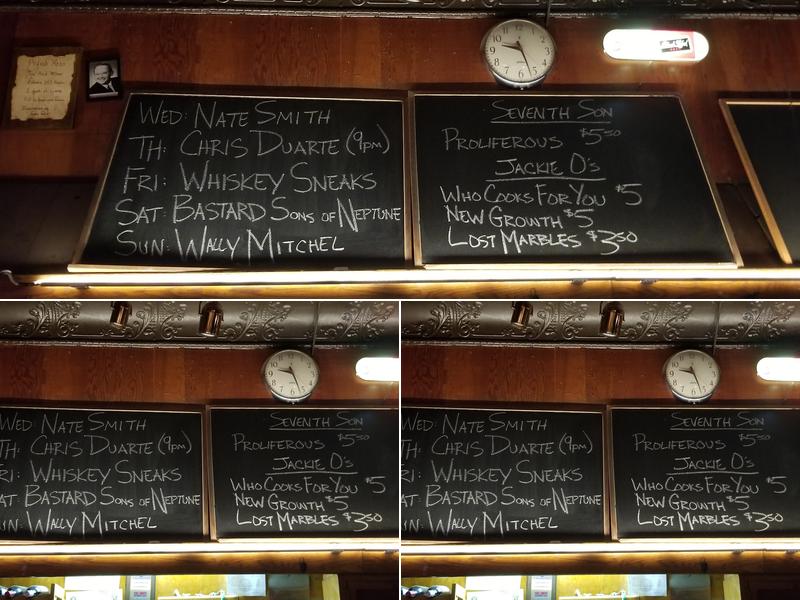 WED: NATE SMITH
TH: CHRIS DUARTE (9PM)
FRI: WHISKEY SNEAKS
SAT: BASTARD SONS OF NEPTUNE
SUN: WALLY MITCHEL
SEVENTH SON
PROLIFEROUS $5.50
JACKIE O'S
WHO COOKS FOR YOU $5
NEW GROWTH $5
LOST MARBLES $3.50
NATE SMITH
CHRIS DUARTE (9PM)
WHISKEY SNEAKS
BASTARD SONS OF NEPTUNE
WALLY MITCHEL
SEVENTH SON
PROLIFEROUS $5.50
JACKIE O'S
WHO COOKS FOR YOU $5
NEW GROWTH $5
LOST MARBLES $3.50
WED: NATE SMITH
TH: CHRIS DUARTE (9PM)
WHISKEY SNEAKS
BASTARD SONS OF NEPTUNE
WALLY MITCHEL
SEVENTH SON
PROLIFEROUS $5.50
JACKIE O'S
WHO COOKS FOR YOU $5
NEW GROWTH $5
LOST MARBLES $3.50